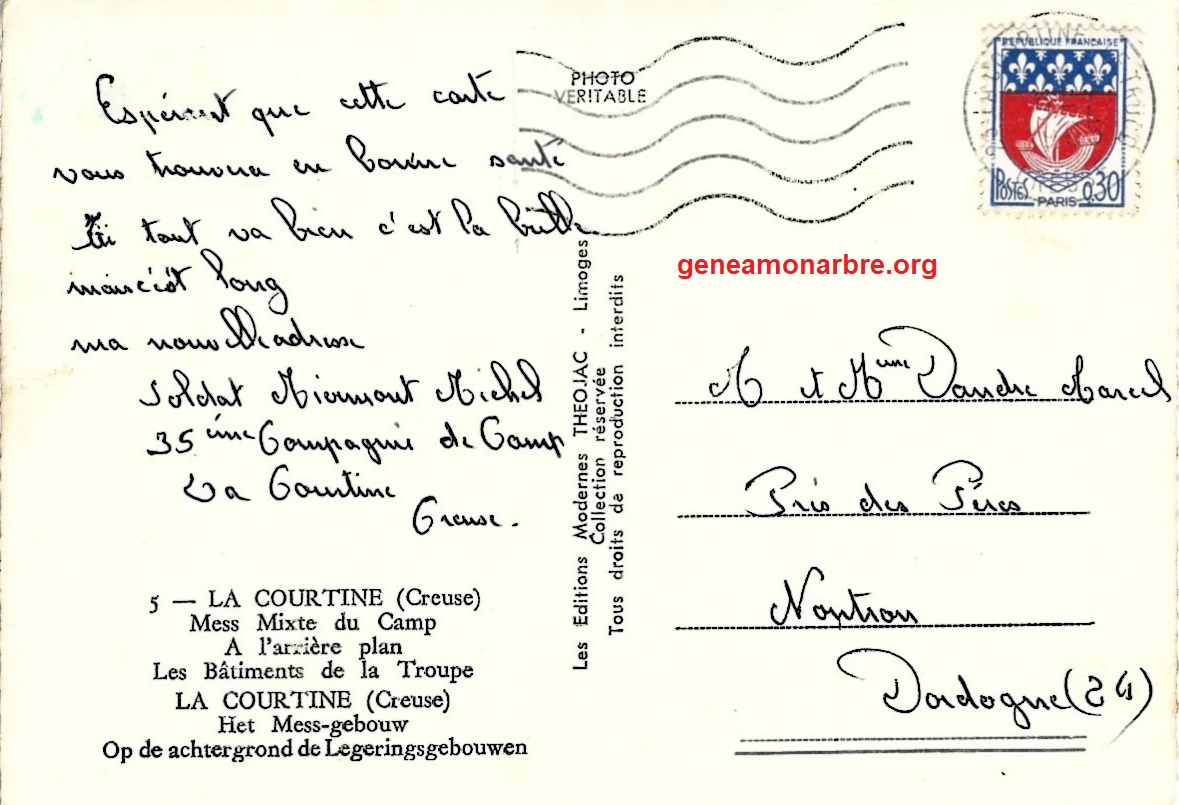 Espérent que cette carte
vous trouvera en bonne santé
Ici tout va bien c'est la bulle
mais c'est long
ma nouvelle adresse
Soldat Miermont Michel
35 ème Compagnie de Camp
La Courtine
Creuse.
5 — LA COURTINE (Creuse)
Mess Mixte du Camp
A l'arrière plan
Les Bâtiments de la Troupe
LA COURTINE (Creuse)
Het Mess-gebouw
Op de achtergrond de Legeringsgebouwen
PHOTO
VERITABLE
Les Editions Modernes THEOJAC - Limoges
Collection réservée
Tous droits de reproduction interdits
REPUBLIQUE FRANÇAISE
POSTES PARIS 0,30
geneamonarbre.org
M et Mme Dandre Marcel
Près des Pères
Nontron
Dordogne (24)